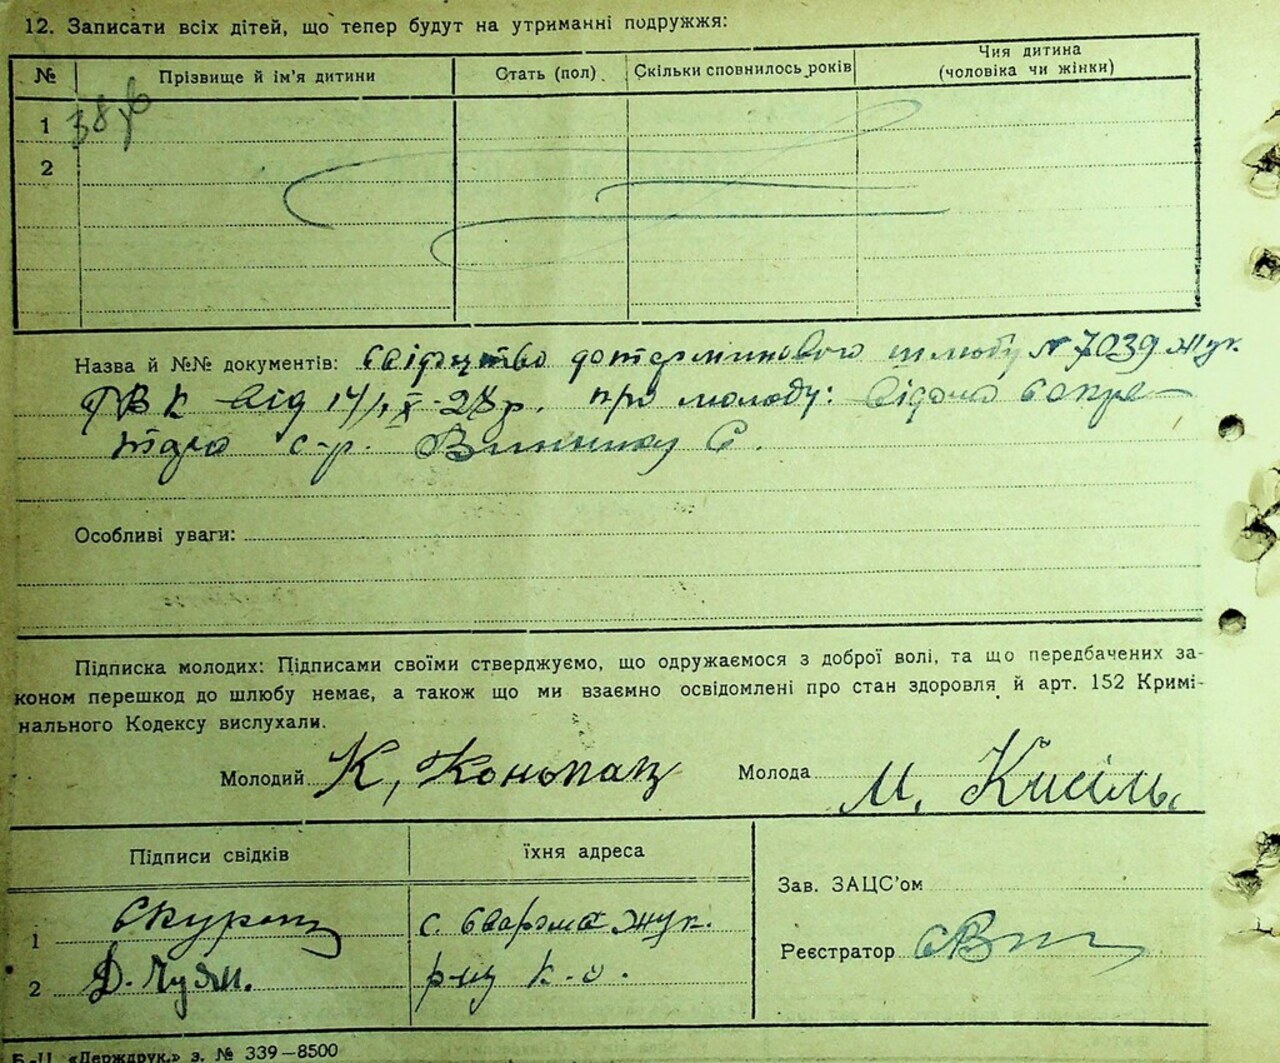 12. Записати всіх дітей, що тепер будут на утриманні подружжя:
№ Прізвище й ім'я дитини Стать (пол) Скільки сповнилось років Чия дитина (чоловіка чи жінки)
1
2
Назва й №№ документів: свідоцтво шлюбу № 7039 Жук.
РВК від про молоду: відома
с-р. Виннику Є.
Особливі уваги:
Підписка молодих: Підписами своїми стверджуємо, що одружаємося з доброї волі, та що передбачених за-
коном перешкод до шлюбу немає, а також що ми взаємно освідомлені про стан здоровля й арт. 152 Кримі-
нального Кодексу вислухали.
Молодий К, Конопац Молода М. Кисіль
Підписи свідків їхня адреса
Зав. ЗАЦС'ом
1 с. Жук.
Реєстратор
2 р-ну К-о.
«Держдрук.» з. № 339—8500